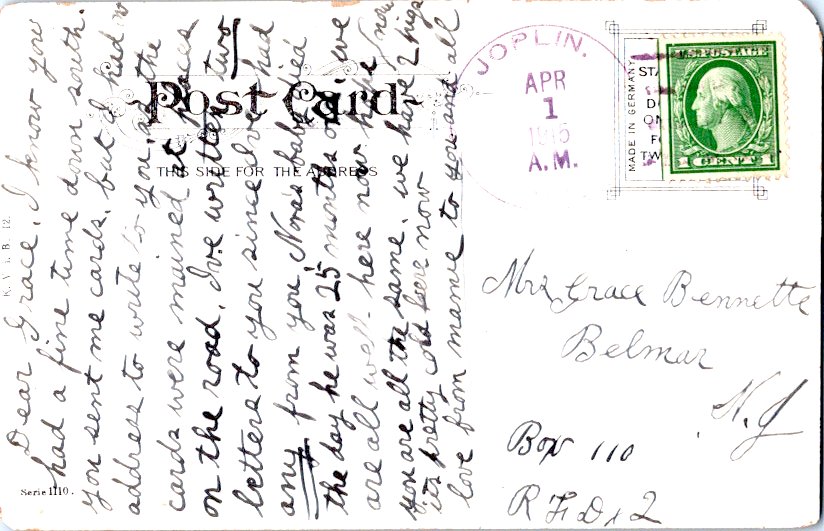 Dear Grace, I know you
had a fine time down south.
you sent me cards, but I had no
address to write to you, as the
cards were mained at places
on the road, I've written two
letters to you since I've had
any from you, Noras baby died
the day he was 25 months old. we
are all well. here now hope
you are all the same. we have 2 inges now
its pretty cold here now
love from mamie to you and all
Post Card
THIS SIDE FOR THE ADDRESS
K. V. i. B. 12
Serie 1110.
JOPLIN.
APR
1
A.M.
MADE IN GERMANY
STA
D
ON
F
TW
U.S. POSTAGE
1 CENT 1
Mrs Grace Bennette
Belmar
N. J
Box 110
R F D. 2